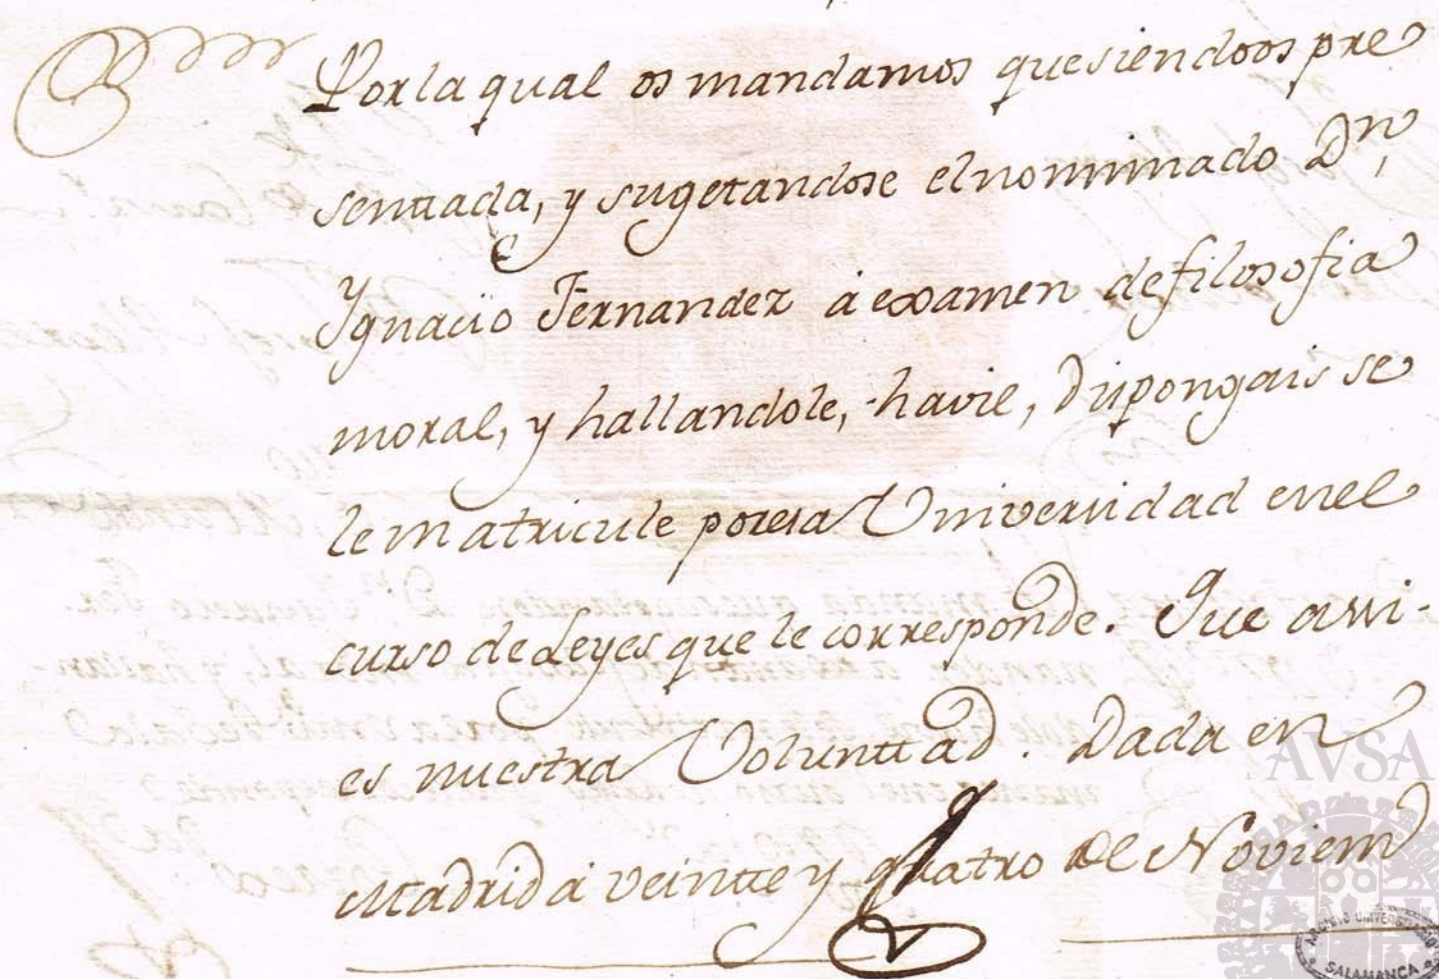 Por la qual os mandamos que siendoos pre
sentada, y sugetandose el nominado Dn,
Ygnacio Fernandez à examen de filosofia
moral, y hallandole, havil, Dispongais se
le matricule por esa Universidad en el
curso de Leyes que le corresponde. Que assi-
es nuestra Voluntad. Dada en
Madrid á veinte y quatro de Noviem
AVSA
ARCHIVO UNIVERSITARIO
SALAMANCA